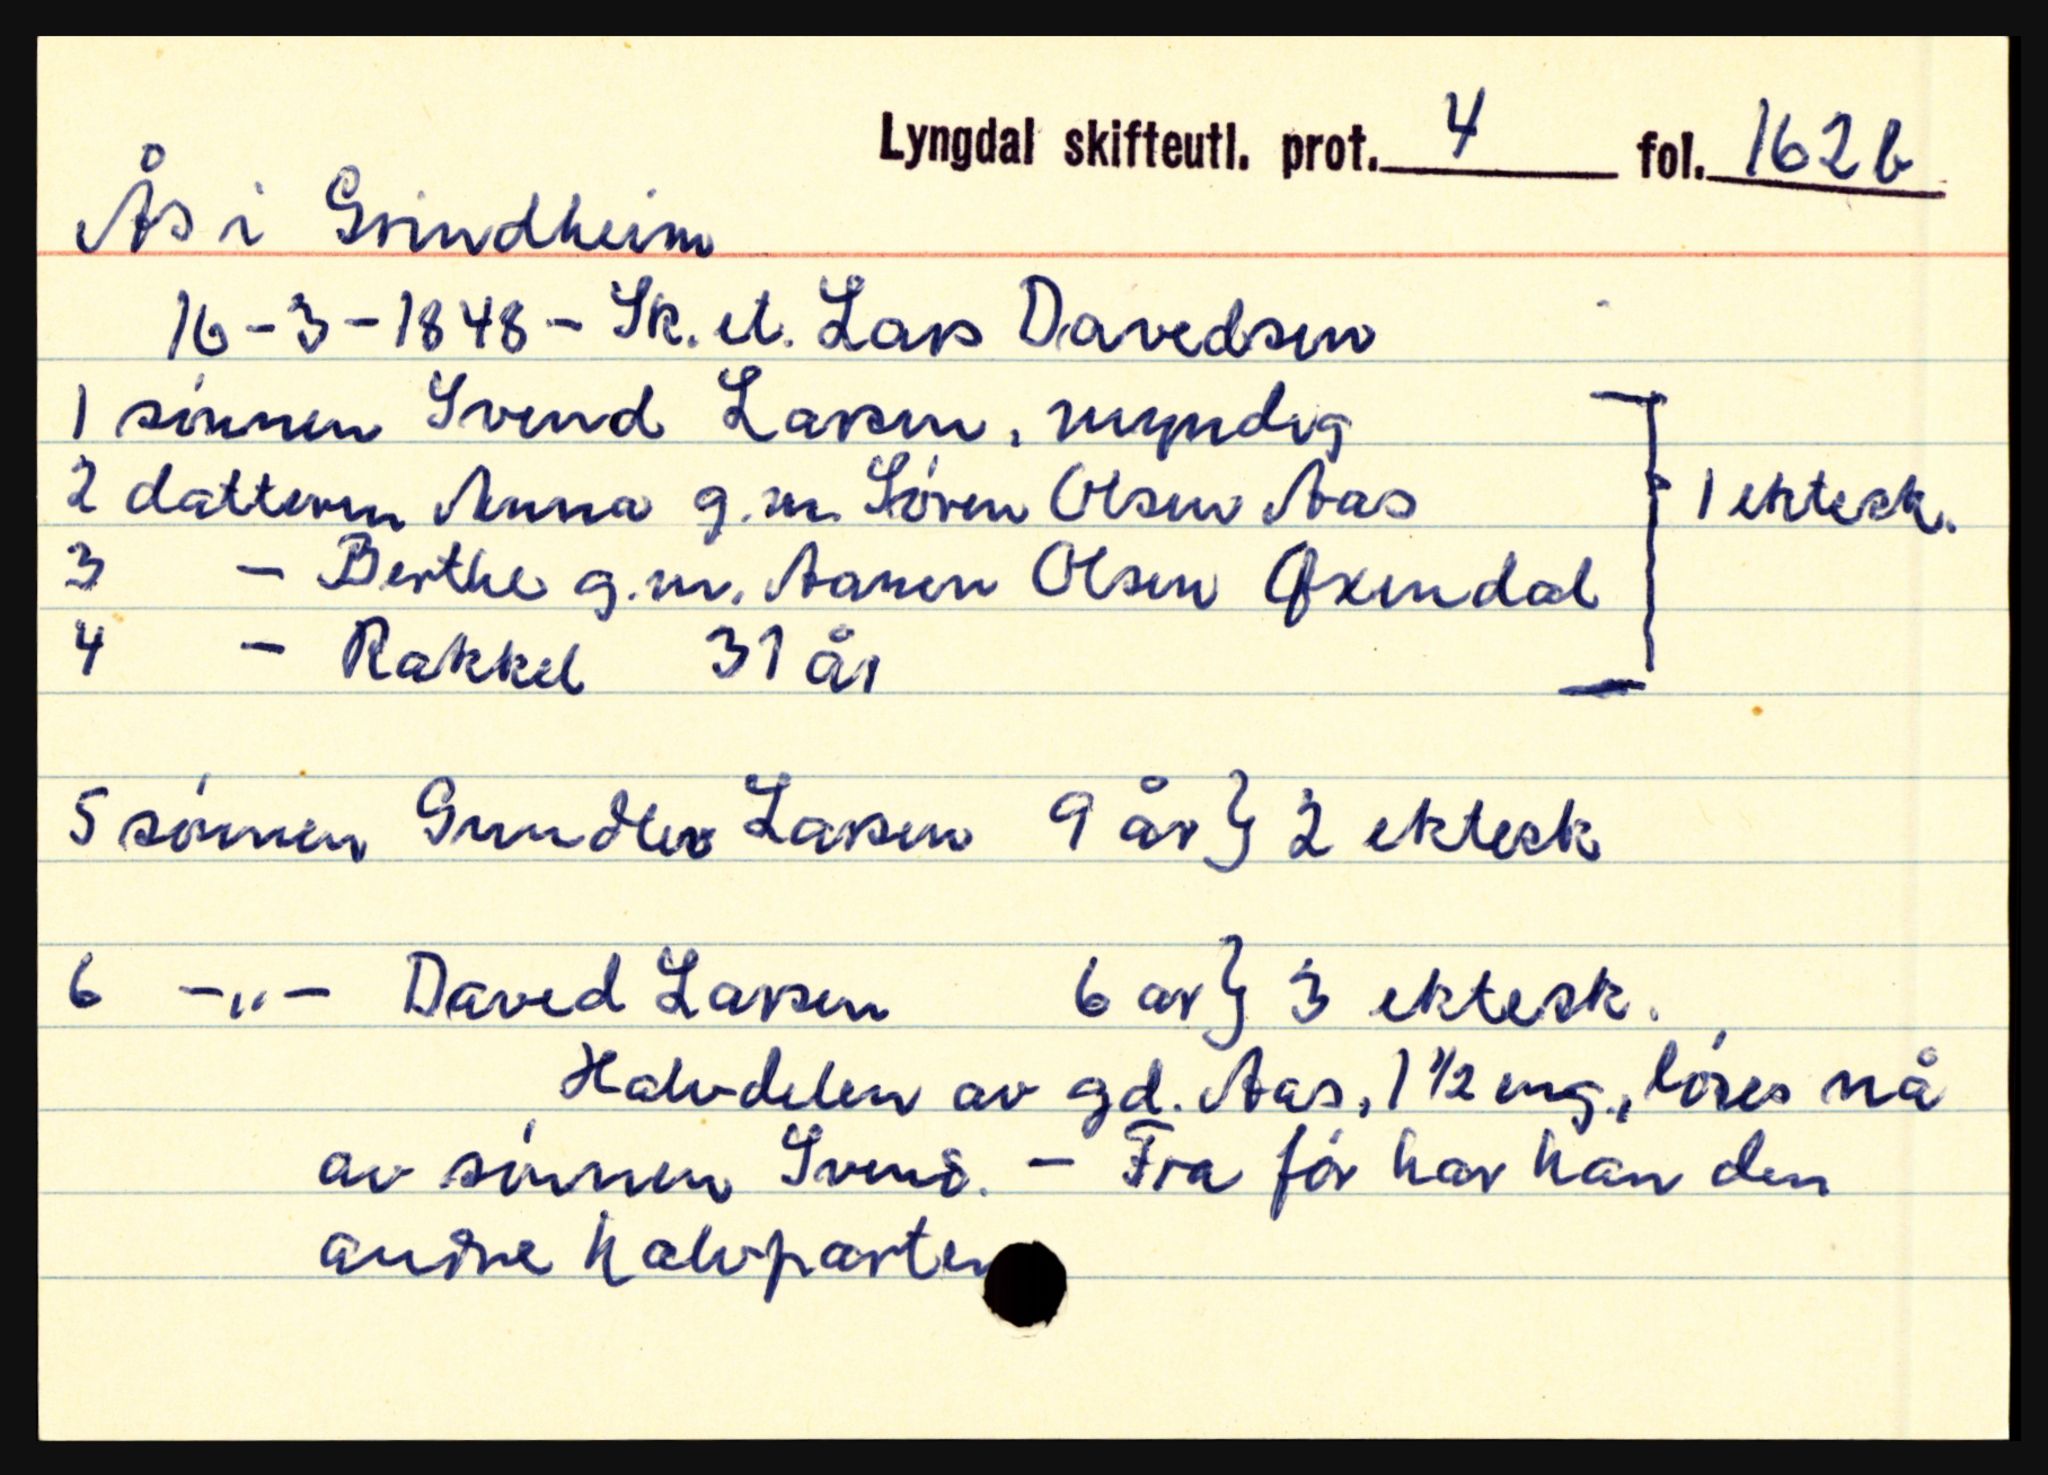 Lyngdal skifteutl. prot. 4 fol. 162 b
Ås i Grindheim
16-3-1848 - Sk. et. Lars Davedsen
1 sønnen Svend Larsen, myndig
2 datteren Anna g.m. Søren Olsen Aas
1 ektesk.
3 - Berthe g.m. Aanen Olsen Øxendal
4 - Rakkel 31 år
5 sønnen Gundlev Larsen 9 år} 2 ektesk
6 -"- Daved Larsen 6 år} 3 ektesk.
Halvdelen av gd. Aas, 1 1/2 mg., løses nå
av sønnen Svend. - Fra før har han den
andre halvparten